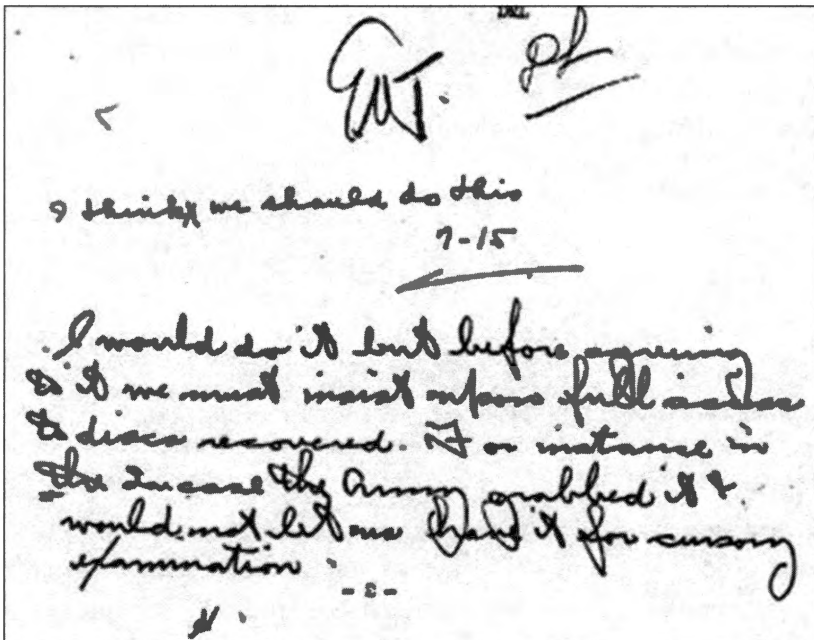 I think we should do this
7-15
I would do it but before agreeing
to it we must insist upon full access
to discs recovered. For instance in
the case the Army grabbed it &
would not let us have it for cursory
examination.